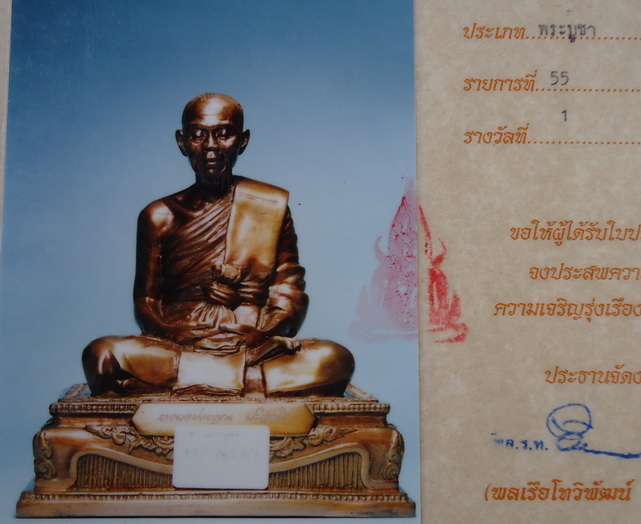 ประเภท.. พระบูชา
รายการที่ 55
รางวัลที่ 1
ขอให้ผู้ได้รับใบป
จงประสพควา
ความเจริญรุ่งเรือง
ประธานจัดง
พล.ร.ท.
(พลเรือโทวิพัฒน์